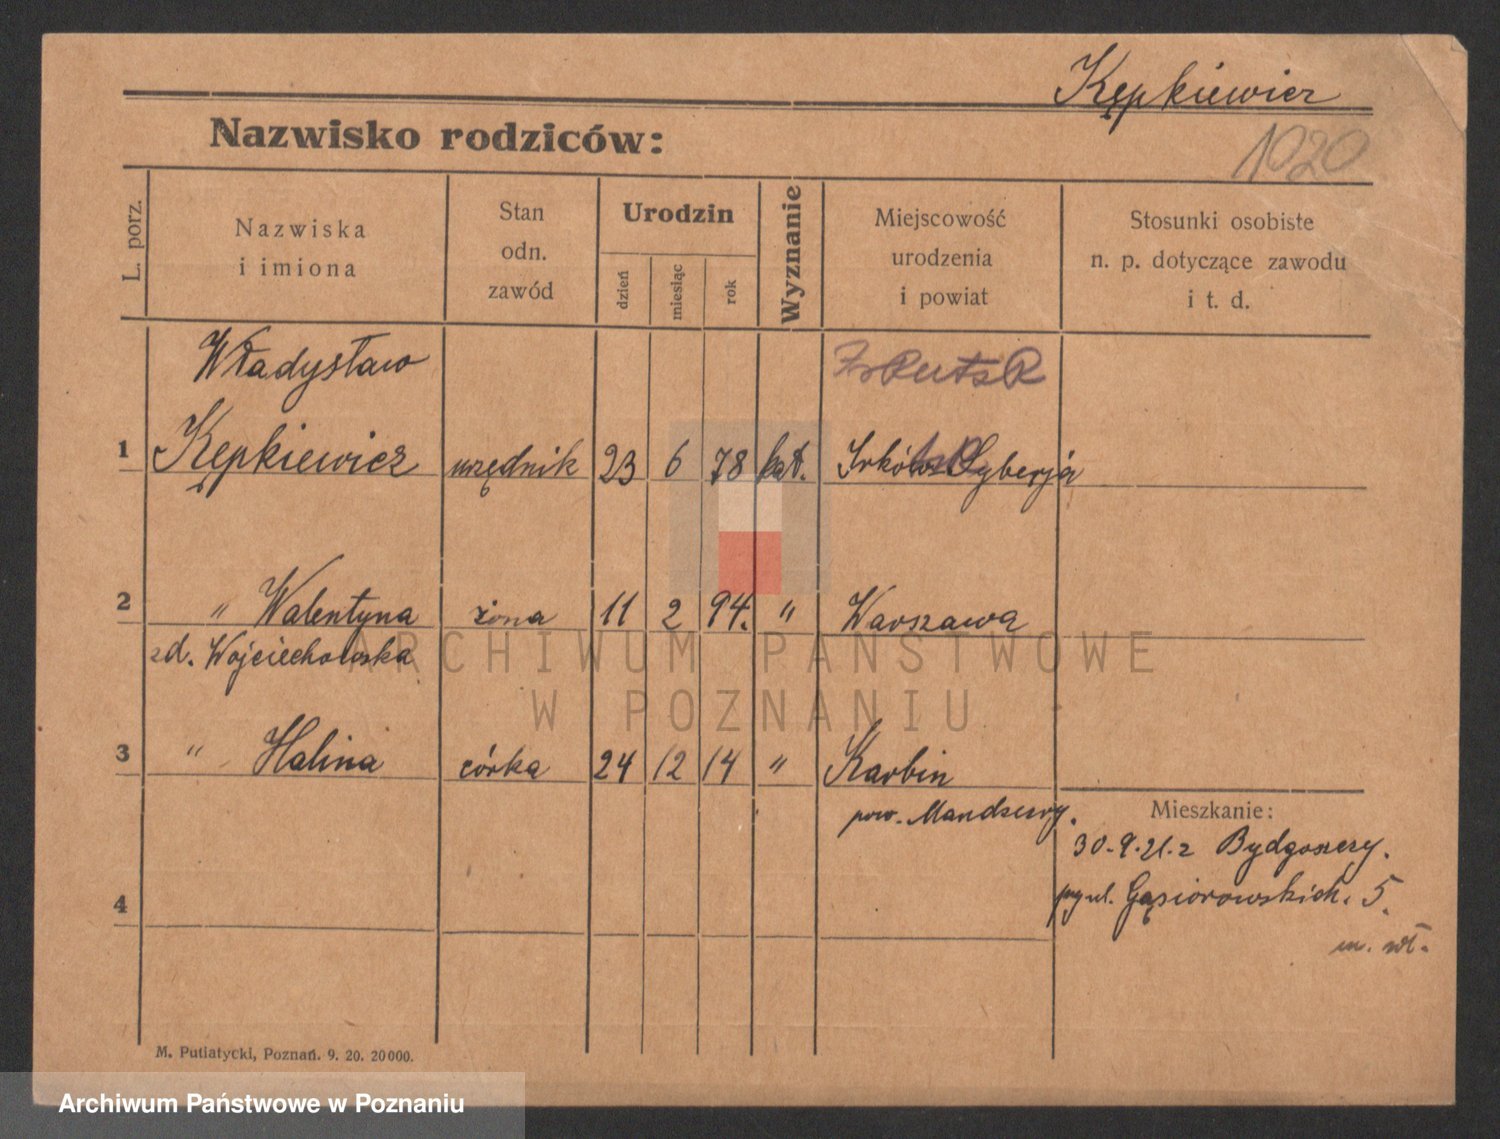 Kępkiewicz
Nazwisko rodziców:
1020
L. porz.
Nazwiska
i imiona
Stan
odn.
zawód
Urodzin
dzień
miesiąc
rok
Wyznanie
Miejscowość
urodzenia
i powiat
Stosunki osobiste
n. p. dotyczące zawodu
i t. d.
Władysław
1 Kępkiewicz urzędnik 23 6 78 kat. Syberja
2 " Walentyna żona 11 2 94. " Warszawa
zd. Wojciechowska
3 " Halina córka 24 12 14 " Karbin
pow. Mandżury.
Mieszkanie:
30.9.21.z Bydgoszczy.
przy ul. Gąsiorowskich. 5.
4
M. Putiatycki, Poznań. 9. 20. 20000.
ARCHIWUM PAŃSTWOWE
W POZNANIU
Archiwum Państwowe w Poznaniu